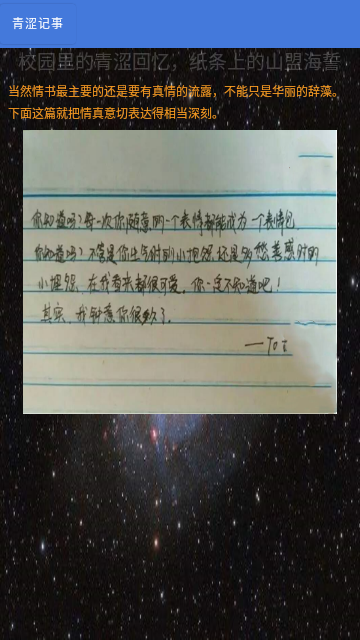 青涩记事
校园里的青涩回忆，纸条上的山盟海誓
当然情书最主要的还是要有真情的流露，不能只是华丽的辞藻。
下面这篇就把情真意切表达得相当深刻。
你知道吗？每一次你随意的一个表情都能成为一个表情包
你知道吗？不管是你生气时的小抱怨还是多愁善感时的
小埋怨，在我看来都很可爱，你一定不知道吧！
其实，我钟意你很久了。
—To